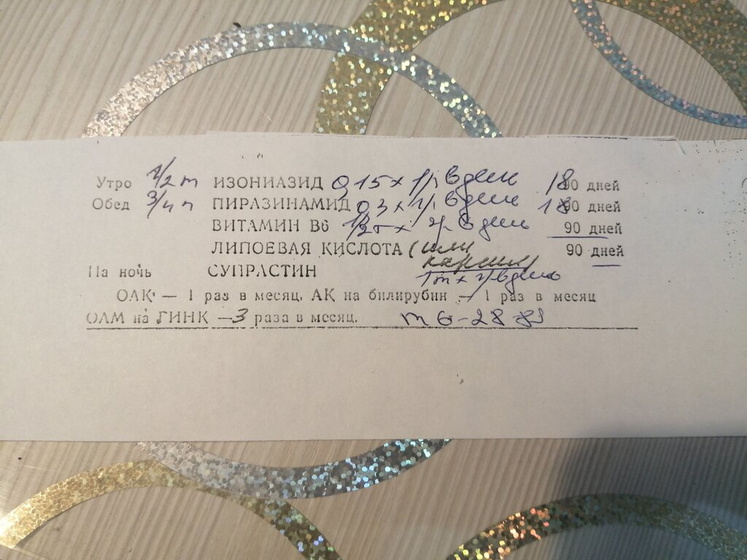 Утро 1/2 т ИЗОНИАЗИД 0,15 х 1/р в день 180 дней
Обед 3/4 т ПИРАЗИНАМИД 0,3 х 1/р в день 180 дней
ВИТАМИН В6 1/2т х 2/р в день 90 дней
ЛИПОЕВАЯ КИСЛОТА (или 90 дней
карсил)
На ночь СУПРАСТИН 1т х 1/р в день
ОАК — 1 раз в месяц, АК на билирубин — 1 раз в месяц
ОАМ на ГИНК — 3 раза в месяц.